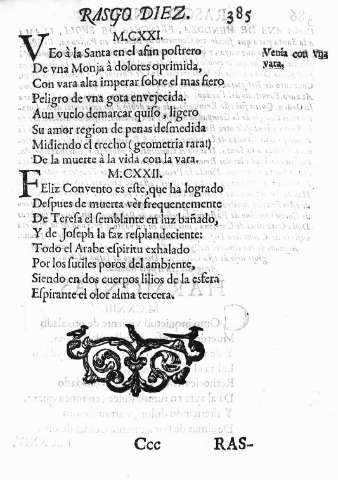 RASGO DIEZ. 385
M.CXXI.
VEo à la Santa en el afan postrero
De vna Monja à dolores oprimida,
Con vara alta imperar sobre el mas fiero
Peligro de vna gota envejecida.
Aun vuelo demarcar quiso, ligero
Su amor region de penas desmedida
Midiendo el trecho (geometria rara!)
De la muerte à la vida con la vara.
Venia con vna
vara.
M.CXXII.
FEliz Convento es este, que ha logrado
Despues de muerta vèr frequentemente
De Teresa el semblante en luz bañado,
Y de Joseph la faz resplandeciente:
Todo el Arabe espiritu exhalado
Por los sutiles poros del ambiente,
Siendo en dos cuerpos lilios de la esfera
Espirante el olor alma tercera.
Ccc RAS-